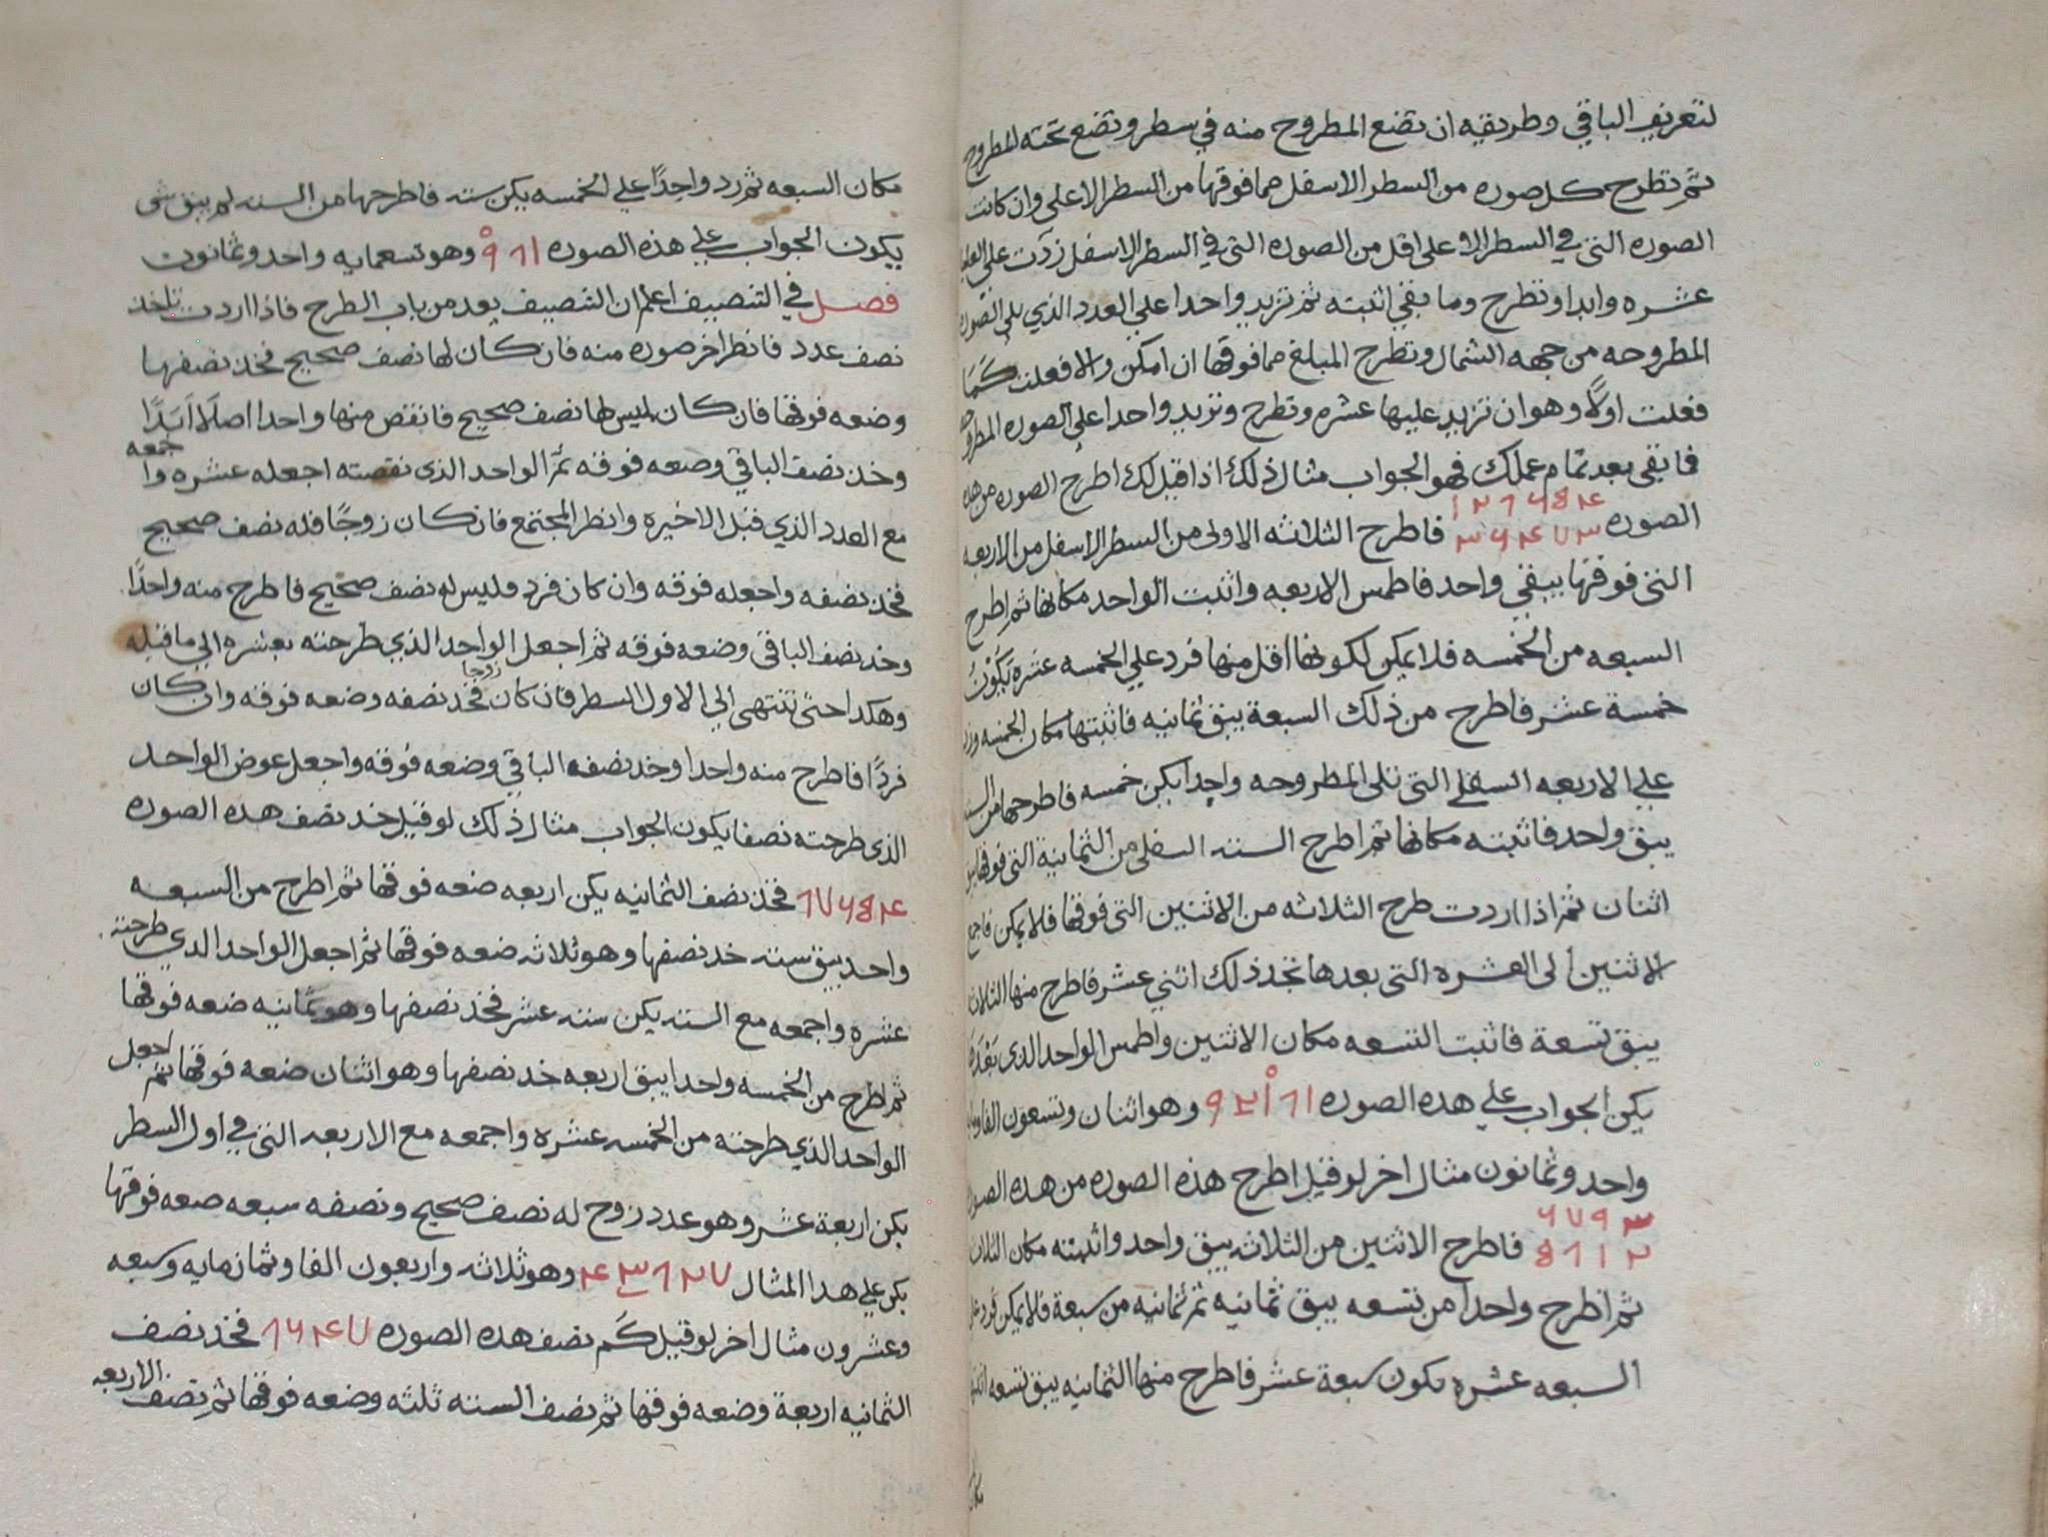 لتعريف الباقي وطريقه ان تضع المطروح منه في سطر وتضع تحته المطروح
ثم تطرح كل صوره من السطر الاسفل مما فوقها من السطر الاعلى وان كانت
الصوره التي في السطر الاعلى اقل من الصوره التي في السطر الاسفل زدت على العليا
عشره وابدا وتطرح وما بقي اثبته ثم تزيد واحدا على العدد الذي يلي الصوره
المطروحه من جهه الشمال وتطرح المبلغ مما فوقها ان امكن والا فعلت كما
فعلت اولًا وهو ان تزيد عليها عشره وتطرح وتزيد واحدا على الصوره المطروحه
فما بقى بعد تمام عملك فهو الجواب مثال ذلك اذا قيل لك اطرح الصوره من هذه
الصوره ١٢٨٦٥٤ ٣٦٤٧٣ فاطرح الثلاثه الاولى من السطر الاسفل من الاربعه
التي فوقها يبقى واحد فاطمس الاربعه واثبت الواحد مكانها ثم اطرح
السبعه من الخمسه فلا يمكن لكونها اقل منها فزد علي الخمسه عشره يكون
خمسة عشر فاطرح من ذلك السبعة يبق ثمانيه فاثبتها مكان الخمسه وزد
علي الاربعه السفلي التي تلى المطروحه واحدا يكن خمسه فاطرحها من السته
يبق واحد فاثبته مكانها ثم اطرح السته السفلى من الثمانية التي فوقها يبق
اثنان ثم اذا اردت طرح الثلاثه من الاثنين التي فوقها فلا يمكن فاجمع
الاثنين الى العشره التي بعدها تجد ذلك اثني عشر فاطرح منها الثلاث
يبق تسعة فاثبت التسعه مكان الاثنين واطمس الواحد الذي بعدها
يكن الجواب علي هذه الصوره ٩٢١٨١ وهو اثنان وتسعون الفا ومايه
واحد وثمانون مثال اخر لو قيل اطرح هذه الصوره من هذه الصوره
٦٧٩٣
٥٨١٢ فاطرح الاثنين من الثلاثه يبق واحد واثبته مكان الثلاث
ثم اطرح واحدا من تسعه يبق ثمانيه ثم ثمانيه من سبعة فلا يمكن فزد على
السبعه عشره يكون سبعة عشر فاطرح منها الثمانيه يبق تسعه اثبتها
مكان
مكان السبعه ثم زد واحدًا علي الخمسه يكن سته فاطرحها من السته لم يبق شى
يكون الجواب علي هذه الصوره ٩٨١ وهو تسعمايه واحد وثمانون
فصل في التنصيف اعلم ان التنصيف يعد من باب الطرح فاذا اردت تاخذ
نصف عدد فانظر اخر صوره منه فان كان لها نصف صحيح فخذ نصفها
وضعه فوقها فان كان ليس لها نصف صحيح فانقص منها واحدا اصلا ابدًا
وخذ نصف الباقي وضعه فوقه ثم الواحد الذى نقصته اجعله عشره واجمعه
مع العدد الذي قبل الاخيره وانظر المجتمع فان كان زوجًا فله نصف صحيح
فخذ نصفه واجعله فوقه وان كان فرد فليس له نصف صحيح فاطرح منه واحدًا
وخذ نصف الباقى وضعه فوقه ثم اجعل الواحد الذي طرحته بعشره الى ما قبله
وهكدا حتى تنتهى الي الاول السطر فان كان زوجا فخد نصفه وضعه فوقه وان كان
فردًا فاطرح منه واحدا وخد نصفه الباقي وضعه فوقه واجعل عوض الواحد
الذى طرحته نصفا يكون الجواب مثال ذلك لو قيل خد نصف هده الصوره
٨٧٦٥٤ فخذ نصف الثمانيه يكن اربعه ضعه فوقها ثم اطرح من السبعه
واحد يبق سته خد نصفها وهو ثلاثه ضعه فوقها ثم اجعل الواحد الدي طرحته
عشره واجمعه مع السته يكن سته عشر فخد نصفها وهو ثمانيه ضعه فوقها
ثم اطرح من الخمسه واحدا يبق اربعه خد نصفها وهو اثنان ضعه فوقها ثم اجعل
الواحد الذي طرحته من الخمسه عشره واجمعه مع الاربعه التي في اول السطر
يكن اربعة عشر وهو عدد زوح له نصف صحيح ونصفه سبعه ضعه فوقها
يكن علي هدا المثال ٤٣٨٢٧ وهو ثلاثه واربعون الفا وثمانمايه وسبعه
وعشرون مثال اخر لو قيل كم نصف هده الصوره ٨٦٤٧ فخد نصف
الثمانيه اربعة وضعه فوقها ثم نصف السته ثلثه وضعه فوقها ثم نصف الاربعه